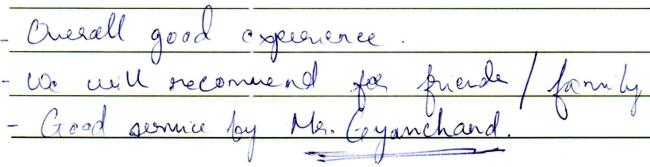 - Overall good experience.
- We will recommend for friends / family
- Good service by Mr. Gyanchand.